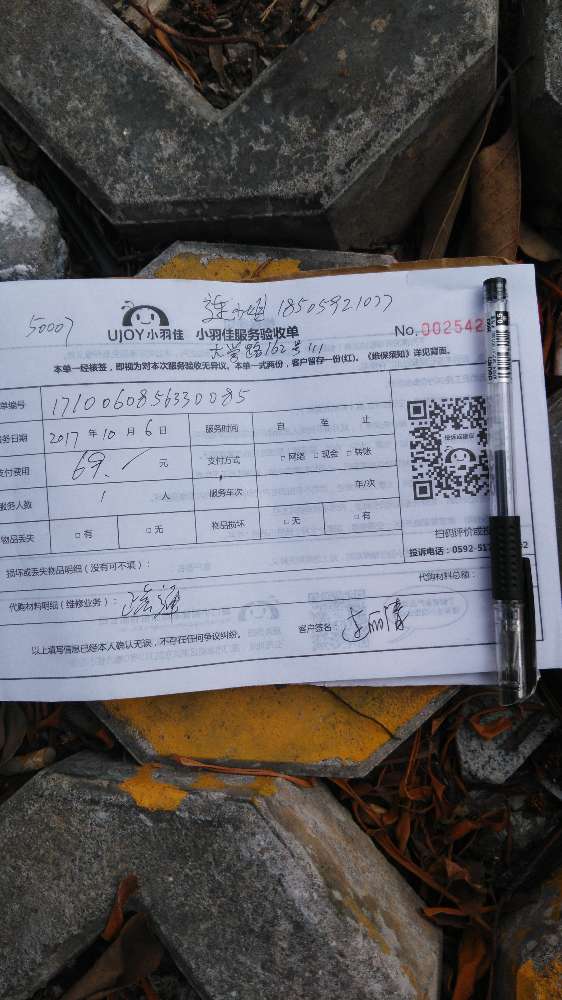 50007 18505921077
UJOY小羽佳 小羽佳服务验收单 No. 002542
大学路162号111
本单一经核签，即视为对本次服务验收无异议，本单一式两份，客户留存一份(红)。《维保须知》详见背面。
单编号 1710060856330085
务日期 2017 年 10 月 6 日 服务时间 自 至 止
支付费用 69. 元 支付方式 □网络 □现金 □转账
服务人数 1 人 服务车次 年/次
物品丢失 □有 □无 物品损坏 □无 □有
投诉或建议
扫码评价或投
投诉电话：0592-517
损坏或丢失物品明细（没有可不填）：
代购材料明细（维修业务）： 代购材料总额：
以上填写信息已经本人确认无误，不存在任何争议纠纷。 客户签名：